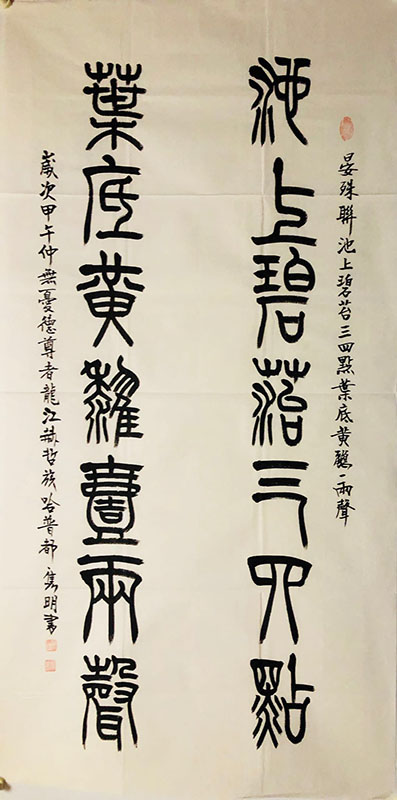 晏殊聯池上碧苔三四點葉底黄鸝一兩聲
池上碧菭三四點
葉底黄鸝壹兩聲
歲次甲午仲無憂德尊者龍江赫哲族哈普都隽明書